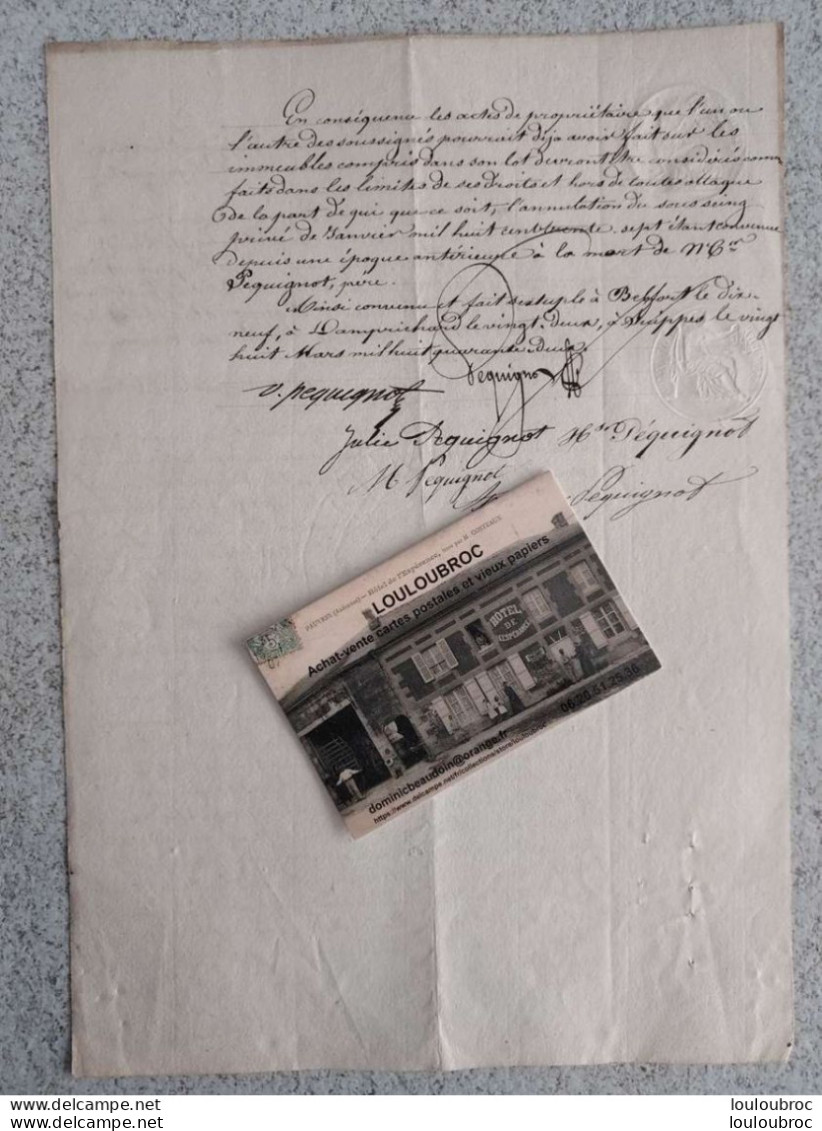 En conséquence les actes de propriétaire que l'un ou
l'autre des soussignés pourrait déja avoir fait sur les
immeubles compris dans son lot devront être considérés comme
faits dans les limites de ses droits et hors de toutes attaque
de la part de qui que ce soit, l'annulation du sous seing
privé de Janvier mil huit cent trente sept étant convenue
depuis une époque antérieure à la mort de
Pequignot, père.
Ainsi convenu et fait sextuple à Belfort le dix-
neuf, à Damprichard le vingt-deux, à Suippes le vingt
huit Mars mil huit quarante-deux.
Pequignot
V. Pequignot
Julie Pequignot Péquignot
M Pequignot
Pequignot
Hôtel de l'Espérance,
LOULOUBROC
Achat-vente cartes postales et vieux papiers
HOTEL
DE
L'ESPERANCE
dominicbeaudoin@orange.fr
delcampe.net louloubroc
delcampe.net louloubroc